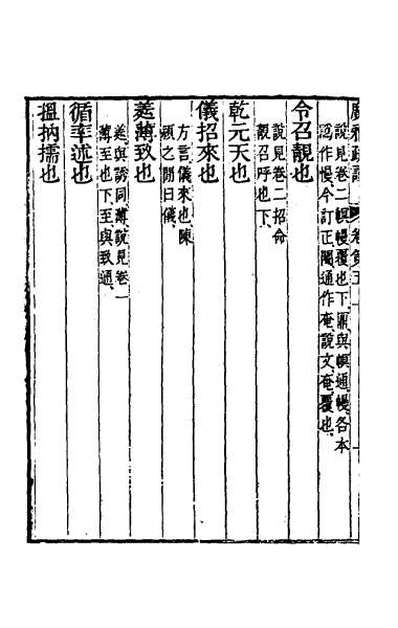 廣雅疏證 卷第五上
說見卷二幎幔覆也下鼏與幎通幔各本
譌作慢今訂正閹通作奄說文奄覆也
令召靚也
說見卷二招命
靚召呼也下
乾元天也
儀招來也
方言儀來也陳
潁之閒曰儀
薄致也
與詣同薄說見卷一
薄至也下至與致通
循率述也
搵抐擩也